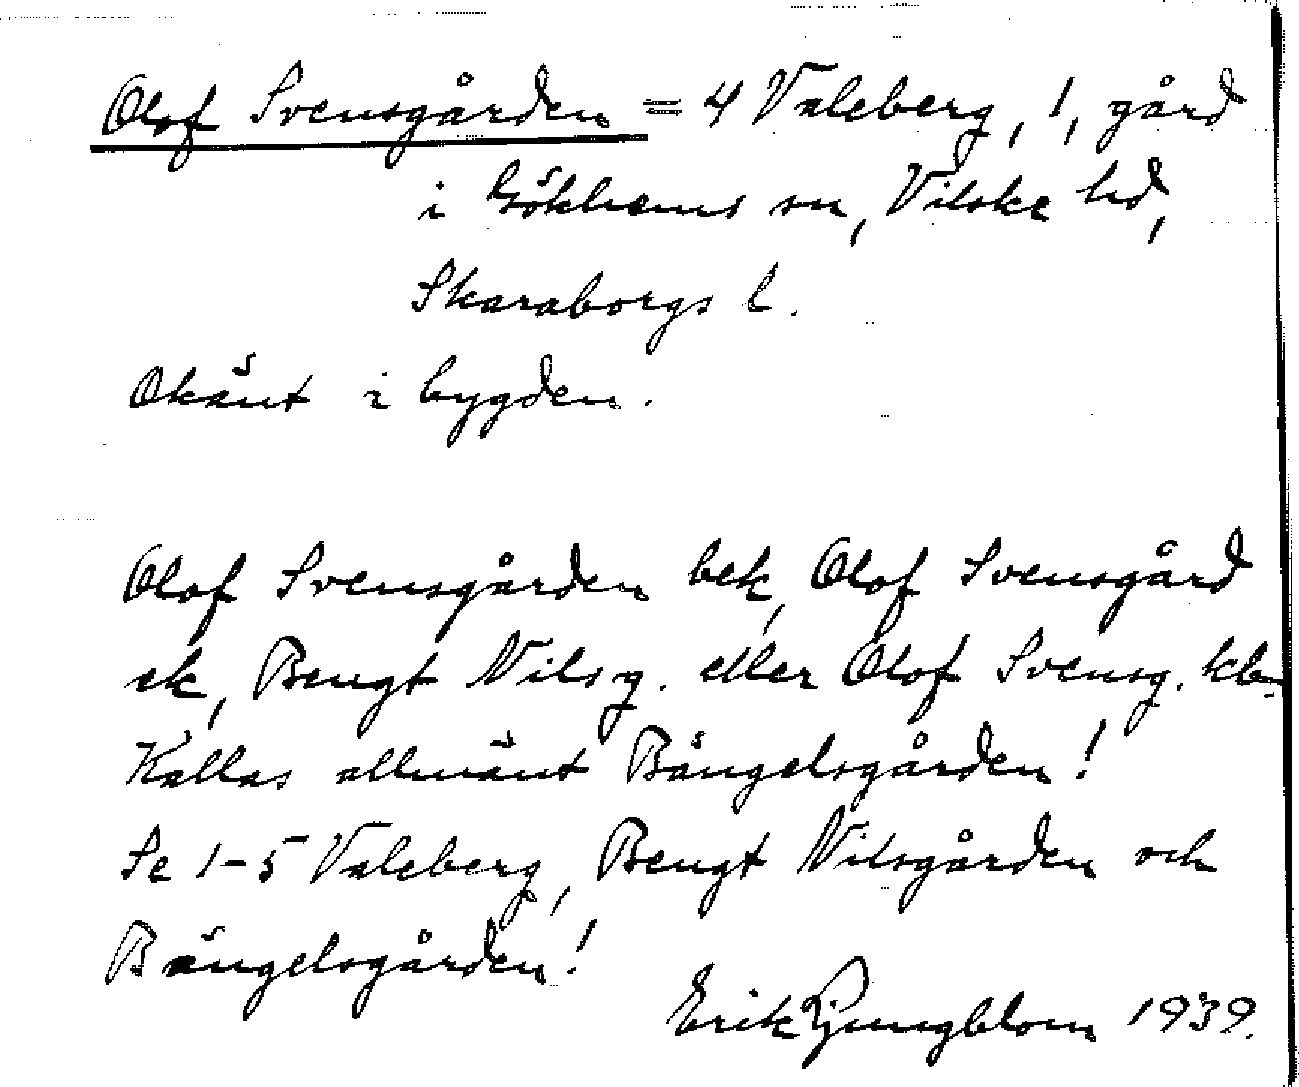 Olof Svensgården = 4 Valeberg, 1, gård
i Gökhems sn, Vilske hd,
Skaraborgs l.
Okänt i bygden.
Olof Svensgården bek, Olof Svensgård
ek, Bengt Nilsg. eller Olof Svensg. kb.
Kallas allmänt Bängelsgården!
Se 1-5 Valeberg, Bengt Nilsgården och
Bängelsgården!
Erik Ljungblom 1939.